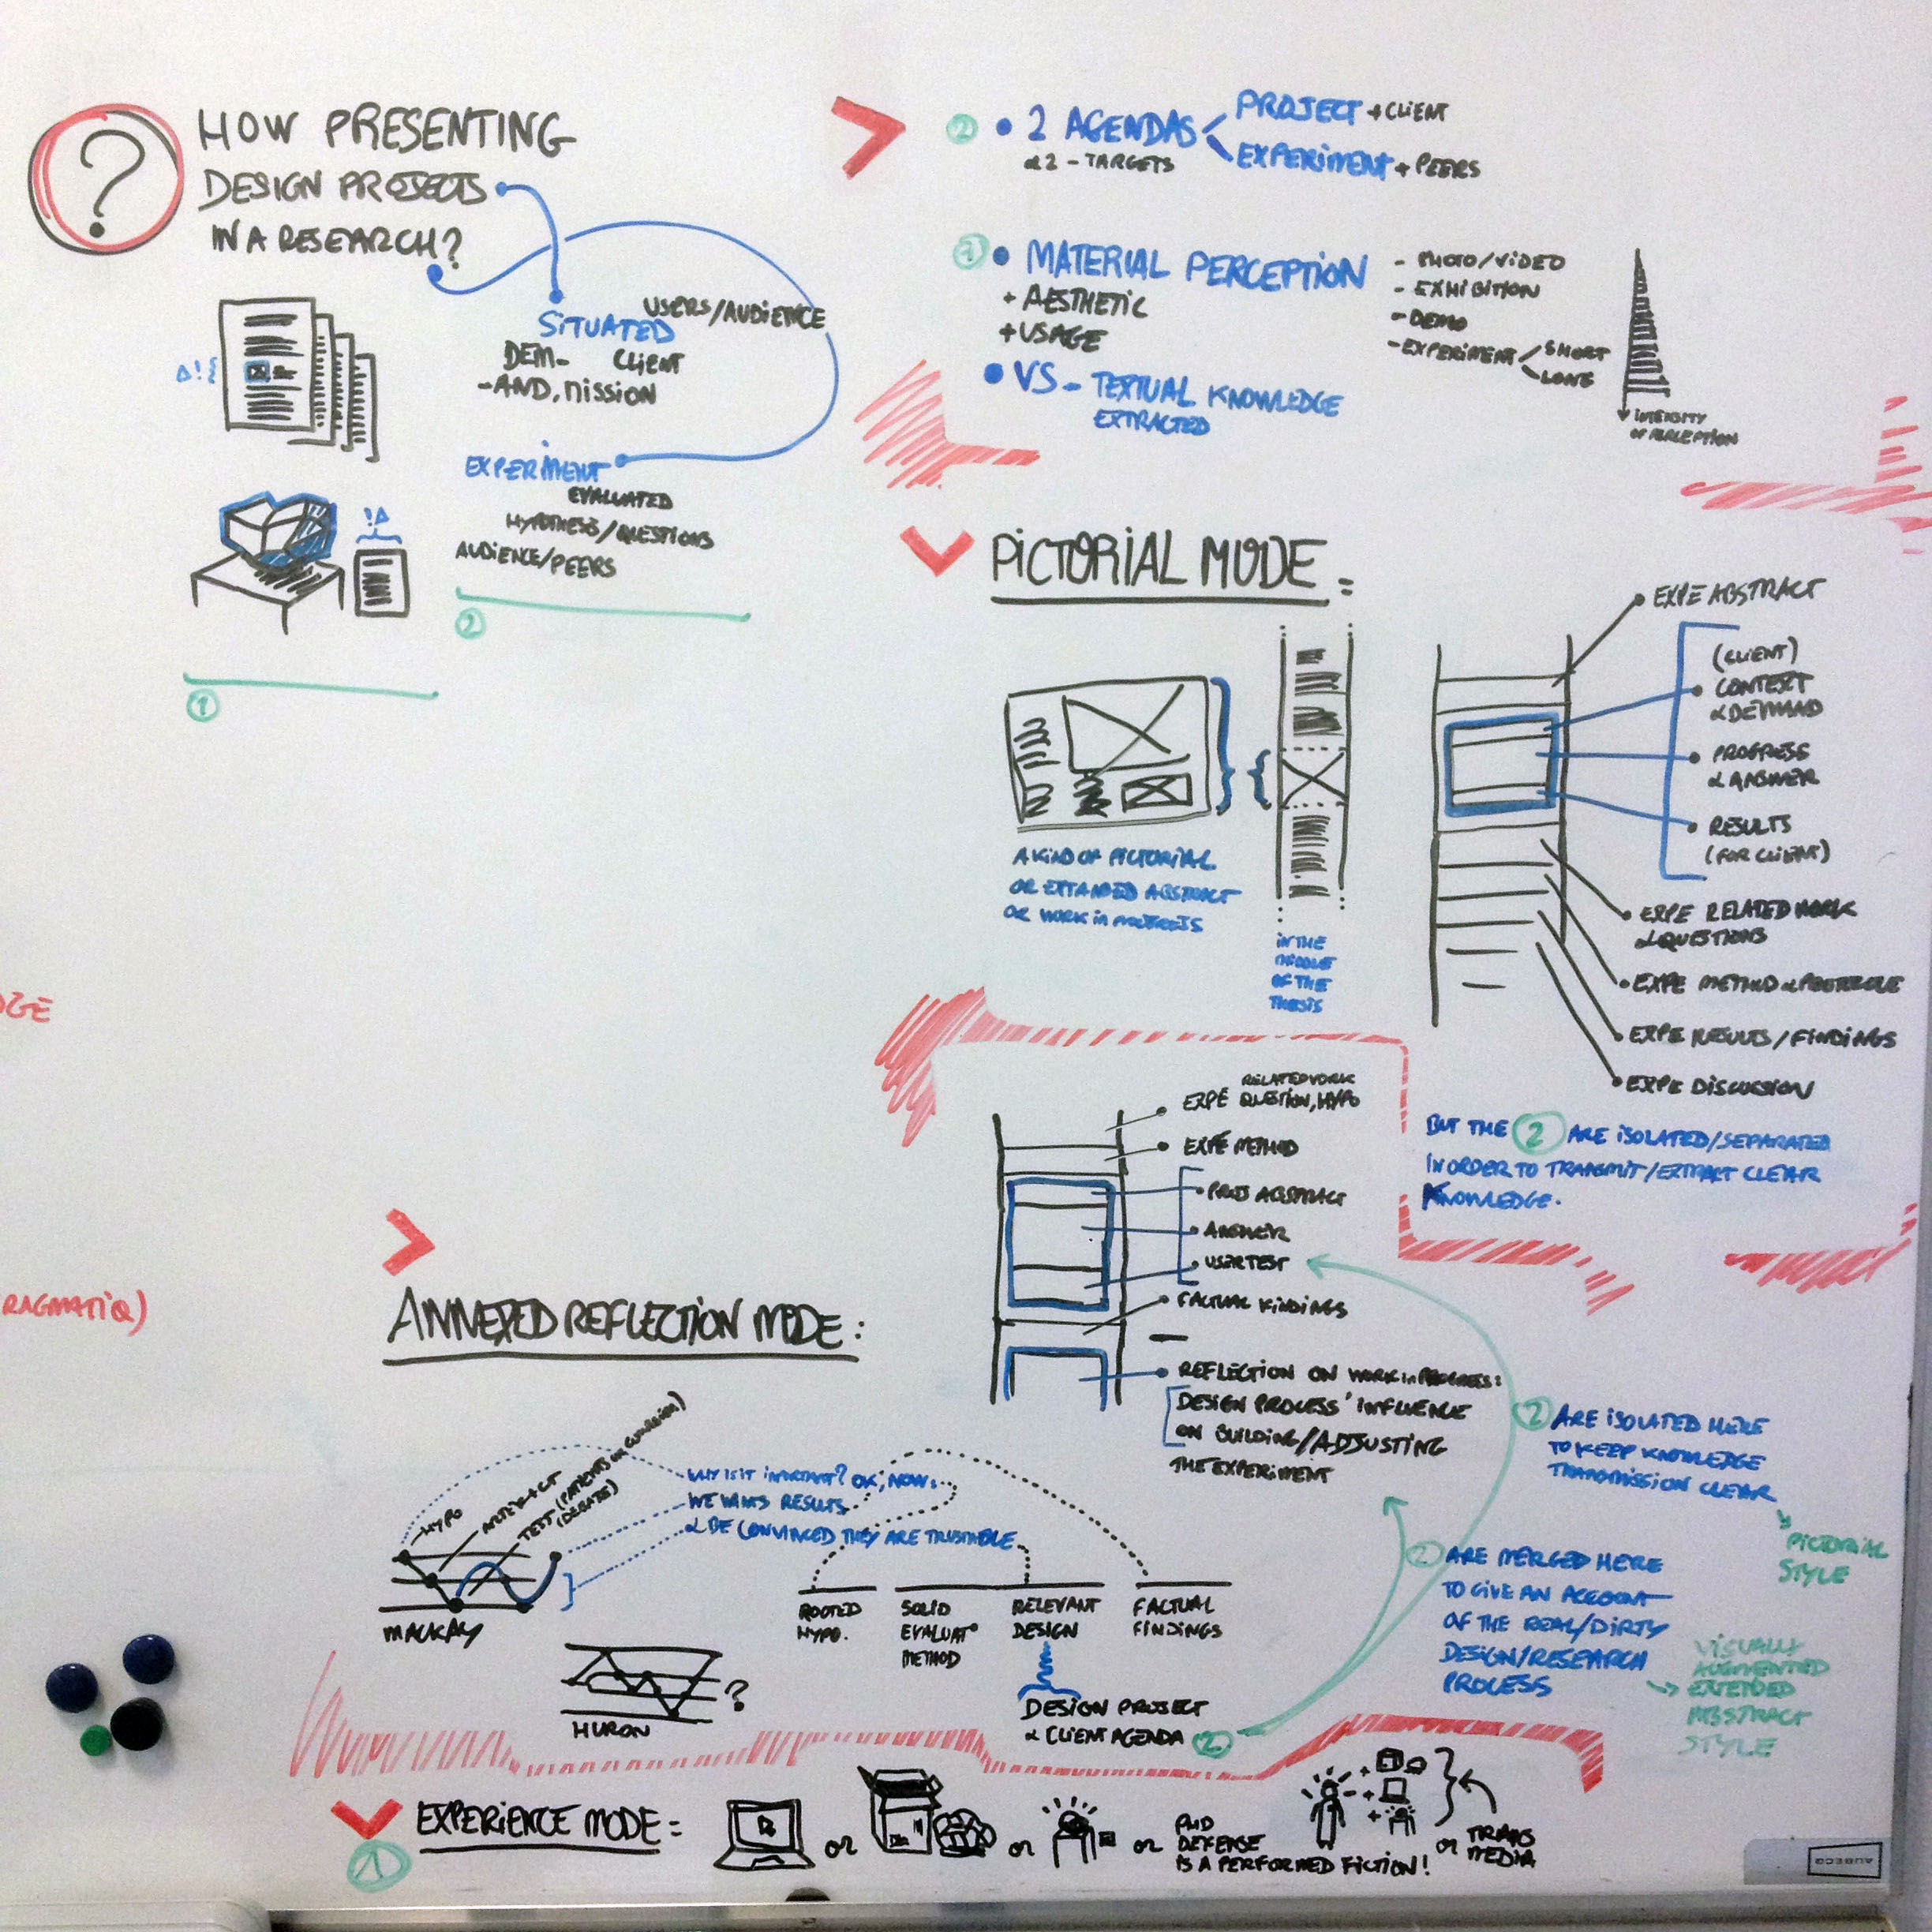 ?
HOW PRESENTING
DESIGN PROJECTS
IN A RESEARCH?
SITUATED
USERS/AUDIENCE
DEM- CLIENT
-AND, MISSION
EXPERIMENT
EVALUATED
HYPOTHESIS/QUESTIONS
AUDIENCE/PEERS
2
1
2 • 2 AGENDAS
& 2 - TARGETS
PROJECT + CLIENT
EXPERIMENT + PEERS
1 • MATERIAL PERCEPTION
+ AESTHETIC
+ USAGE
- PHOTO/VIDEO
- EXHIBITION
- DEMO
- EXPERIMENT
SHORT
LONG
INTENSITY
OF PERCEPTION
• VS - TEXTUAL KNOWLEDGE
EXTRACTED
PICTORIAL MODE:
A KIND OF PICTORIAL
OR EXTANDED ABSTRACT
OR WORK IN PROGRESS
IN THE
MIDDLE
OF THE
THESIS
EXPE ABSTRACT
(CLIENT)
CONTEXT
& DEMAND
PROGRESS
& ANSWER
RESULTS
(FOR CLIENT)
EXPE RELATED WORK
& QUESTIONS
EXPE METHOD &
EXPE RESULTS/FINDINGS
EXPE DISCUSSION
BUT THE 2 ARE ISOLATED/SEPARATED
IN ORDER TO TRANSMIT/EXTRACT CLEAR
KNOWLEDGE.
RELATED WORK
EXPE QUESTION, HYPO
EXPE METHOD
PROJ ABSTRACT
ANSWER
USER TEST
FACTUAL FINDINGS
REFLECTION ON WORK IN PROGRESS:
DESIGN PROCESS' INFLUENCE
ON BUILDING/ADJUSTING
THE EXPERIMENT
2 ARE ISOLATED HERE
TO KEEP KNOWLEDGE
TRANSMISSION CLEAR
PICTORIAL
STYLE
2 ARE MERGED HERE
TO GIVE AN ACCOUNT
OF THE REAL/DIRTY
DESIGN/RESEARCH
PROCESS
VISUALLY
AUGMENTED
EXTENDED
ABSTRACT
STYLE
DGE
RAGMATIQ)
ANNEXED REFLECTION MODE:
HYPO
ARTEFACT
TEST (PATIENTS OR
(DEBATE)
WHY IS IT IMPORTANT? OK, NOW:
WE WANTS RESULTS
& BE CONVINCED THEY ARE TRUSTABLE
MACKAY
HURON
?
ROOTED
HYPO.
SOLID
EVALUAT°
METHOD
RELEVANT
DESIGN
FACTUAL
FINDINGS
DESIGN PROJECT
& CLIENT AGENDA 2
1
EXPERIENCE MODE:
or
or
or
PHD
DEFENSE
IS A PERFORMED FICTION!
or TRANS
MEDIA